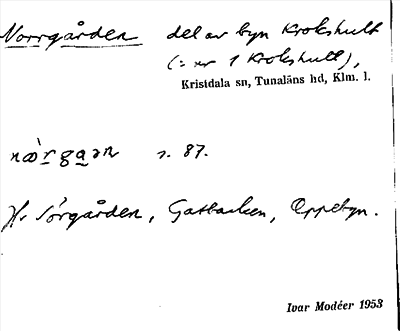 Norrgården del av byn Krokshult
(= nr 1 Krokshult),
Kristdala sn, Tunaläns hd, Klm. l.
s. 87.
Jfr Sörgården, Gatbacken, Oppebyn.
Ivar Modéer 1953